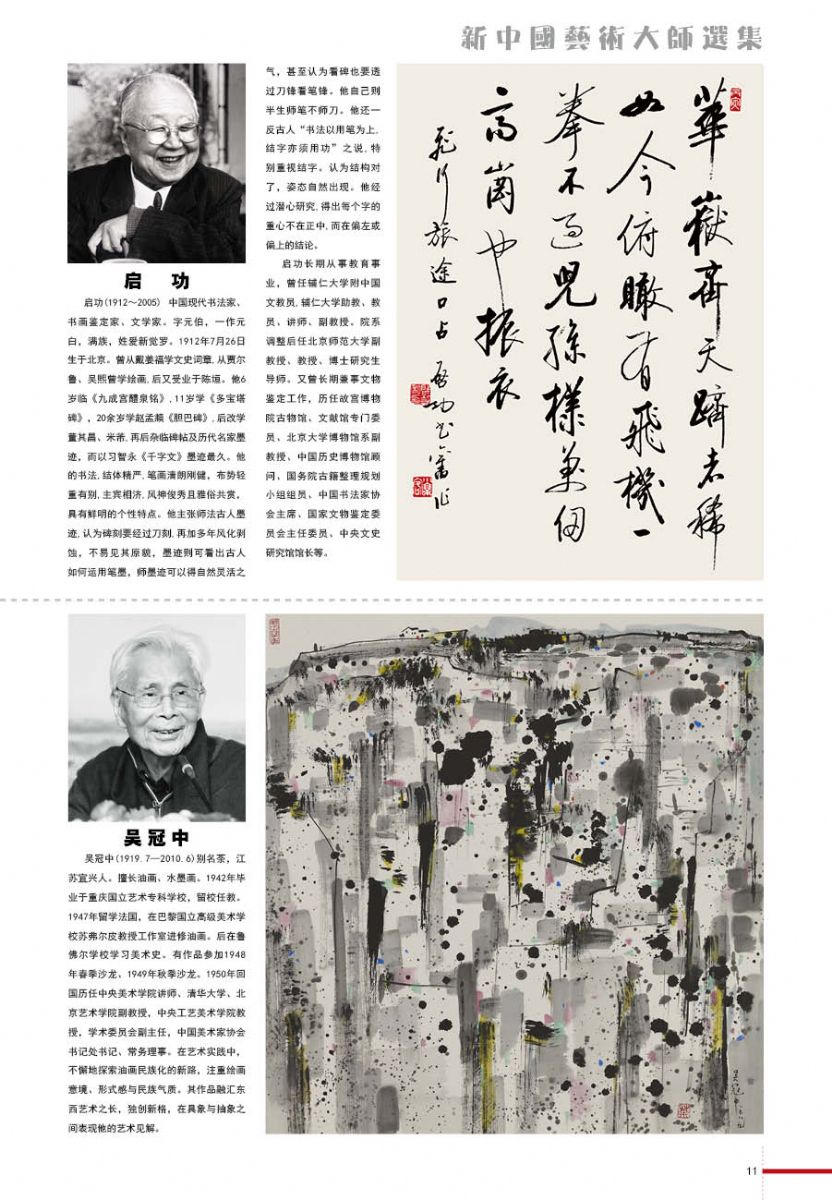 新中國藝術大師選集
启功
启功(1912～2005) 中国现代书法家、
书画鉴定家、文学家。字元伯，一作元
白，满族，姓爱新觉罗。1912年7月26日
生于北京。曾从戴姜福学文史词章，从贾尔
鲁、吴熙曾学绘画，后又受业于陈垣。他6
岁临《九成宫醴泉铭》,11岁学《多宝塔
碑》，20余岁学赵孟頫《胆巴碑》，后改学
董其昌、米芾,再后杂临碑帖及历代名家墨
迹，而以习智永《千字文》墨迹最久。他
的书法,结体精严,笔画清朗刚健，布势轻
重有别,主宾相济,风神俊秀且雅俗共赏，
具有鲜明的个性特点。他主张师法古人墨
迹,认为碑刻要经过刀刻,再加多年风化剥
蚀，不易见其原貌，墨迹则可看出古人
如何运用笔墨，师墨迹可以得自然灵活之
气，甚至认为看碑也要透
过刀锋看笔锋。他自己则
半生师笔不师刀。他还一
反古人“书法以用笔为上,
结字亦须用功”之说,特
别重视结字。认为结构对
了，姿态自然出现。他经
过潜心研究,得出每个字的
重心不在正中,而在偏左或
偏上的结论。
启功长期从事教育事
业，曾任辅仁大学附中国
文教员,辅仁大学助教、教
员、讲师、副教授，院系
调整后任北京师范大学副
教授、教授、博士研究生
导师。又曾长期兼事文物
鉴定工作，历任故宫博物
院古物馆、文献馆专门委
员、北京大学博物馆系副
教授、中国历史博物馆顾
问、国务院古籍整理规划
小组组员、中国书法家协
会主席、国家文物鉴定委
员会主任委员、中央文史
研究馆馆长等。
華嶽齊天躋者稀
如今俯瞰有飛機一
拳不過兒孫樣萬仞
高崗也振衣
飛行旅途口占 啓功書舊作
吴冠中
吴冠中(1919.7—2010.6)别名荼，江
苏宜兴人。擅长油画、水墨画。1942年毕
业于重庆国立艺术专科学校，留校任教。
1947年留学法国，在巴黎国立高级美术学
校苏弗尔皮教授工作室进修油画。后在鲁
佛尔学校学习美术史。有作品参加1948
年春季沙龙、1949年秋季沙龙。1950年回
国历任中央美术学院讲师、清华大学、北
京艺术学院副教授，中央工艺美术学院教
授，学术委员会副主任，中国美术家协会
书记处书记、常务理事。在艺术实践中，
不懈地探索油画民族化的新路，注重绘画
意境、形式感与民族气质。其作品融汇东
西艺术之长，独创新格，在具象与抽象之
间表现他的艺术见解。
吴冠中
11